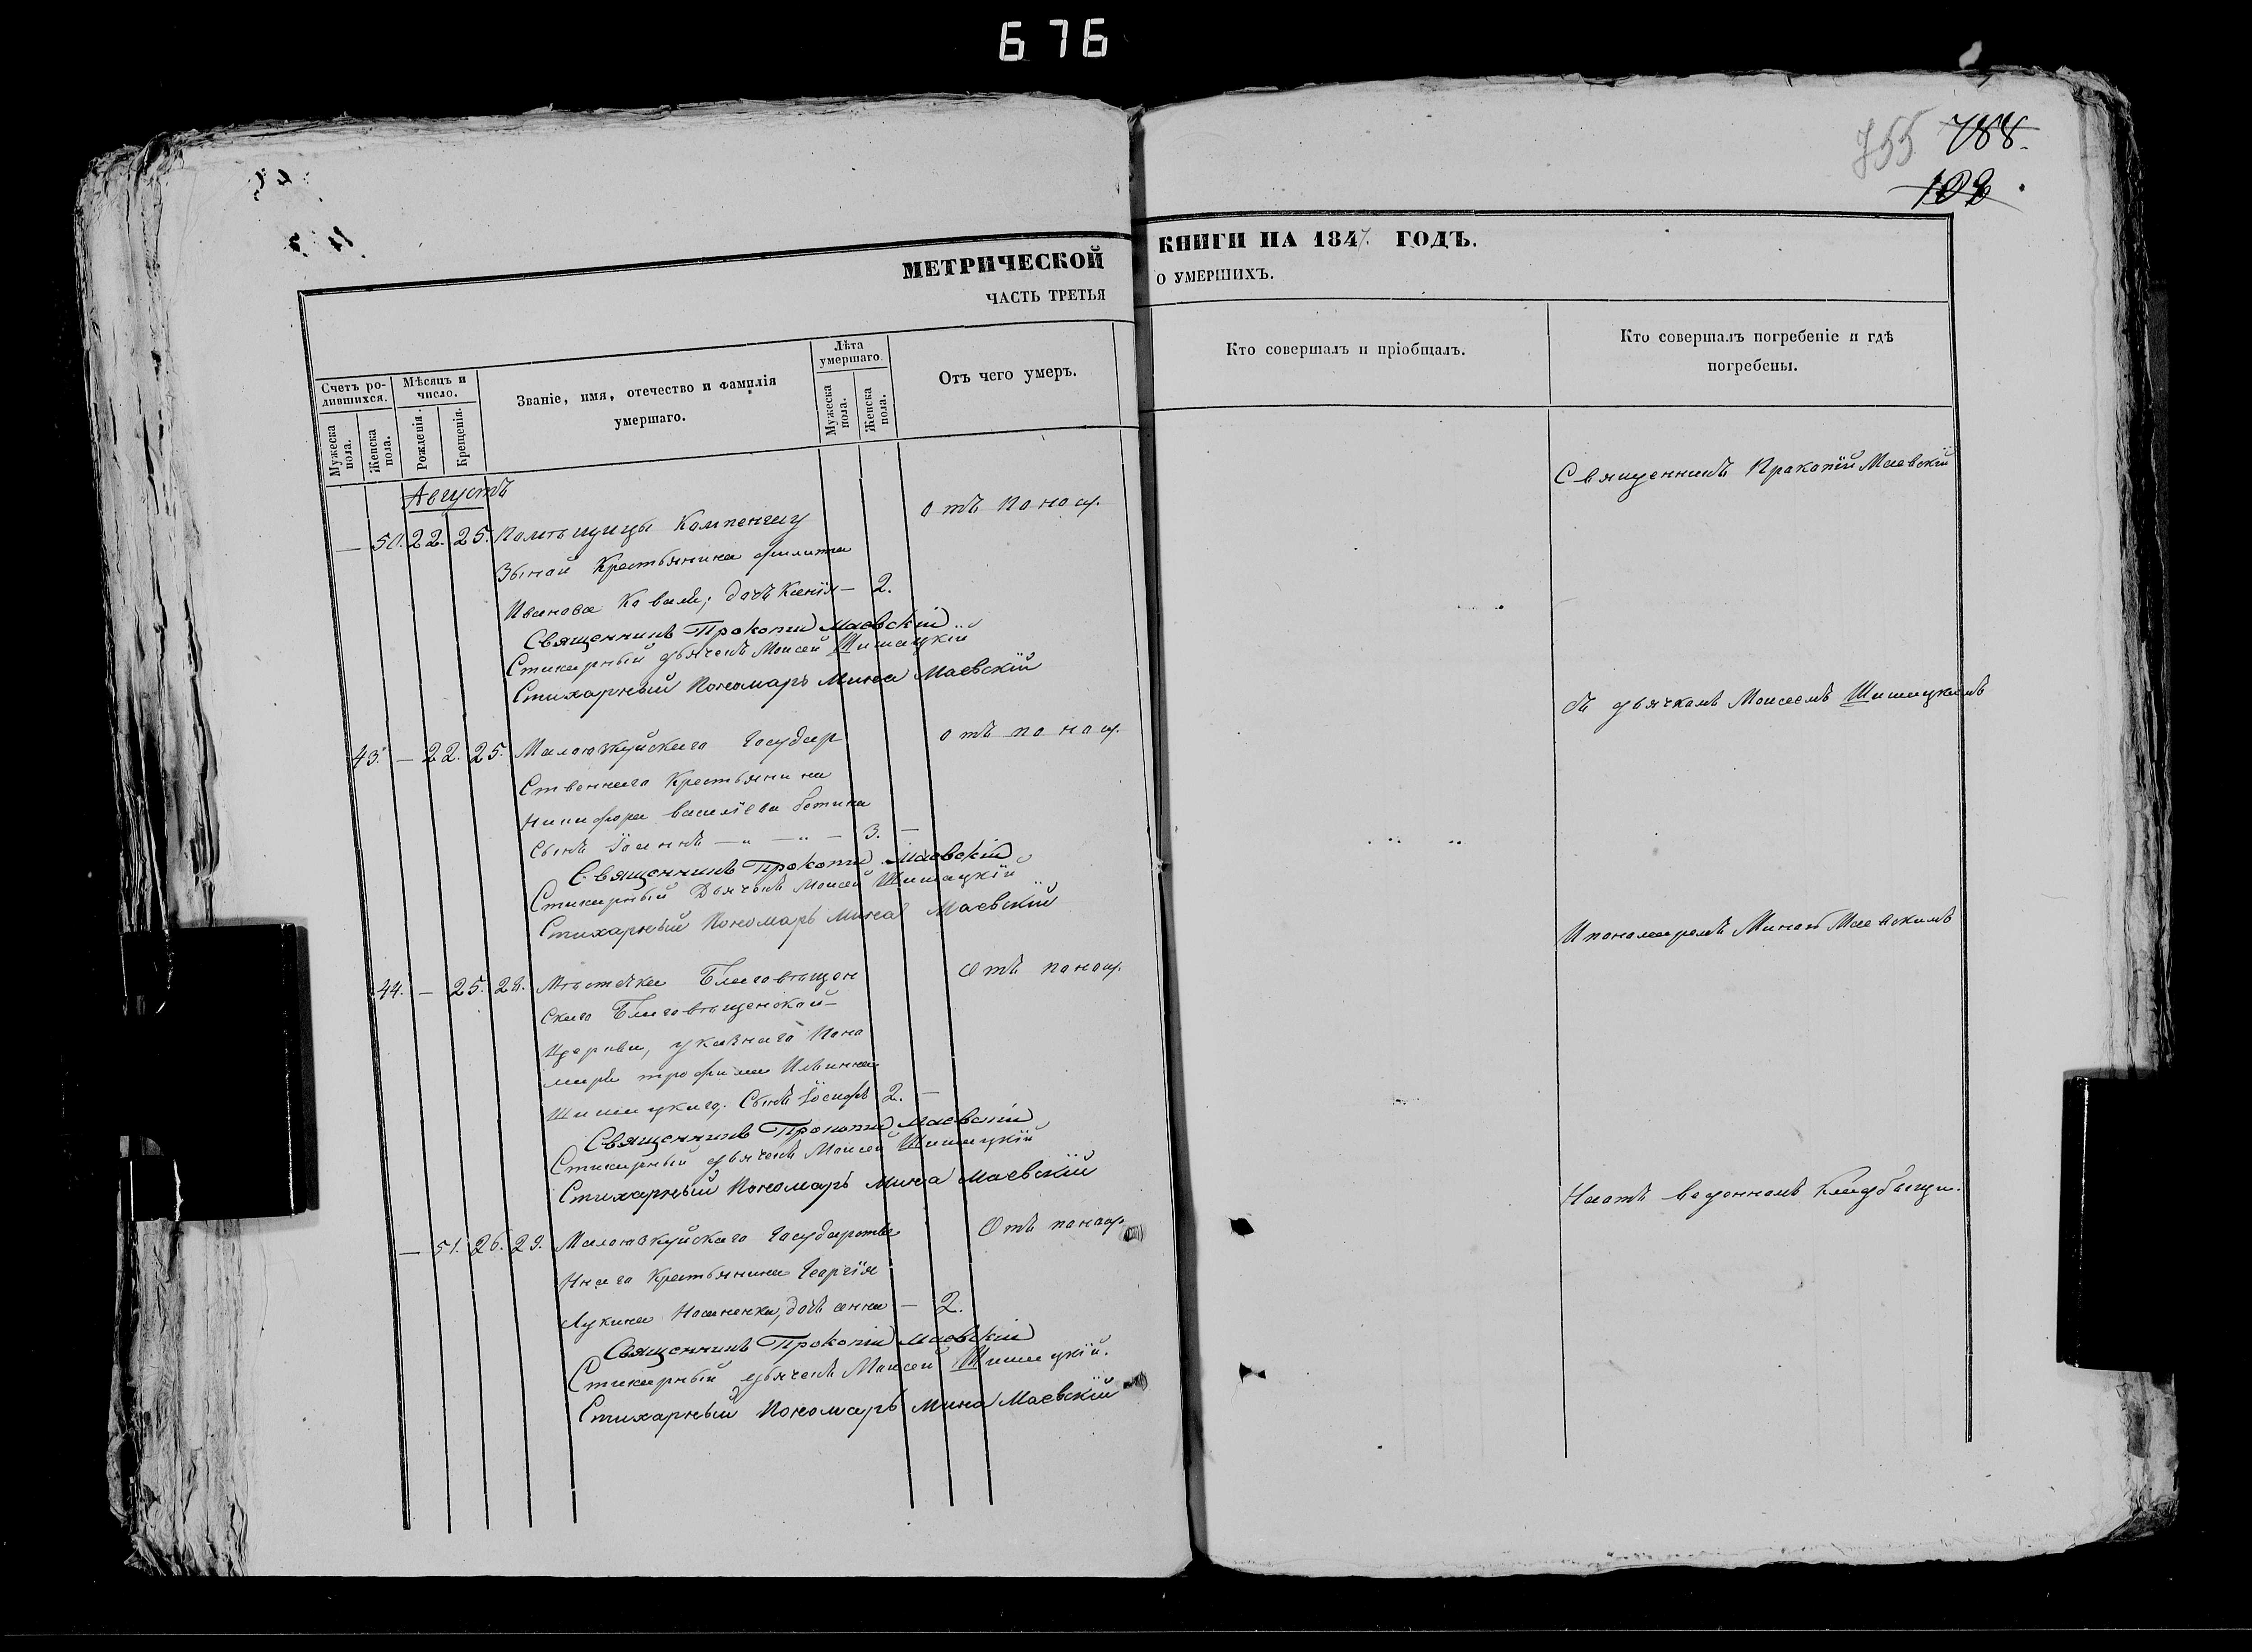 676
755 788.
102.
МЕТРИЧЕСКОЙ КНИГИ НА 1847. ГОДЪ.
ЧАСТЬ ТРЕТЬЯ О УМЕРШИХЪ.
Счетъ ро-
дившихся.
Мужеска
пола.
Женска
пола.
Мѣсяцъ и
число.
Рожденія.
Крещенія.
Званіе, имя, отечество и фамилія
умершаго.
Лѣта
умершаго.
Мужеска
пола.
Женска
пола.
Отъ чего умеръ.
Кто совершалъ и пріобщалъ.
Кто совершалъ погребеніе и гдѣ
погребены.
Августъ
— 50. 22. 25. Помѣщицы отъ понош.
Крестьянина Филиппа
Иванова Коваля, дочь Ксенія — 2.
Священникъ Прокопій Маевскій
Стихарный дьячекъ Моисей Шишацкій
Стихарный Пономарь Мина Маевскій
43. — 22. 25. Государ отъ понош.
ственнаго Крестьянина
Никифора Василіева
Сынъ Іоаннъ — „ — „ — 3. —
Священникъ Прокопій Маевскій
Стихарный Дьячекъ Моисей Шишацкій
Стихарный Пономарь Мина Маевскій
44. — 25. 28. Мѣстечка Благовѣщен отъ понош.
скаго Благовѣщенской
Церкви, указнаго Поно
маря Трофима
Шишацкаго. Сынъ Іосифъ 2. —
Священникъ Прокопій Маевскій
Стихарный дьячекъ Моисей Шишацкій
Стихарный Пономарь Мина Маевскій
— 51. 26. 29. Государстве Отъ понош.
ннаго Крестьянина Георгія
Лукина дочь Анна — 2.
Священникъ Прокопій Маевскій
Стихарный дьячекъ Моисей Шишацкій.
Стихарный Пономарь Мина Маевскій
Священникъ Пракопій Маевскій
съ дьячкомъ Моисеемъ Шишацкимъ
И пономаремъ Миною Маевскимъ
На отъ веденномъ Кладбищи.